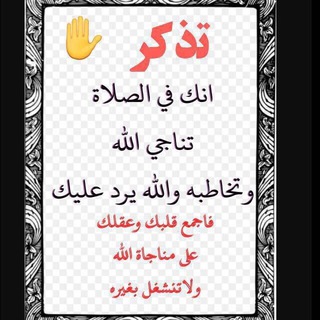 تذكر
انك في الصلاة
تناجي الله
وتخاطبه والله يرد عليك
فاجمع قلبك وعقلك
على مناجاة الله
ولاتنشغل بغيره